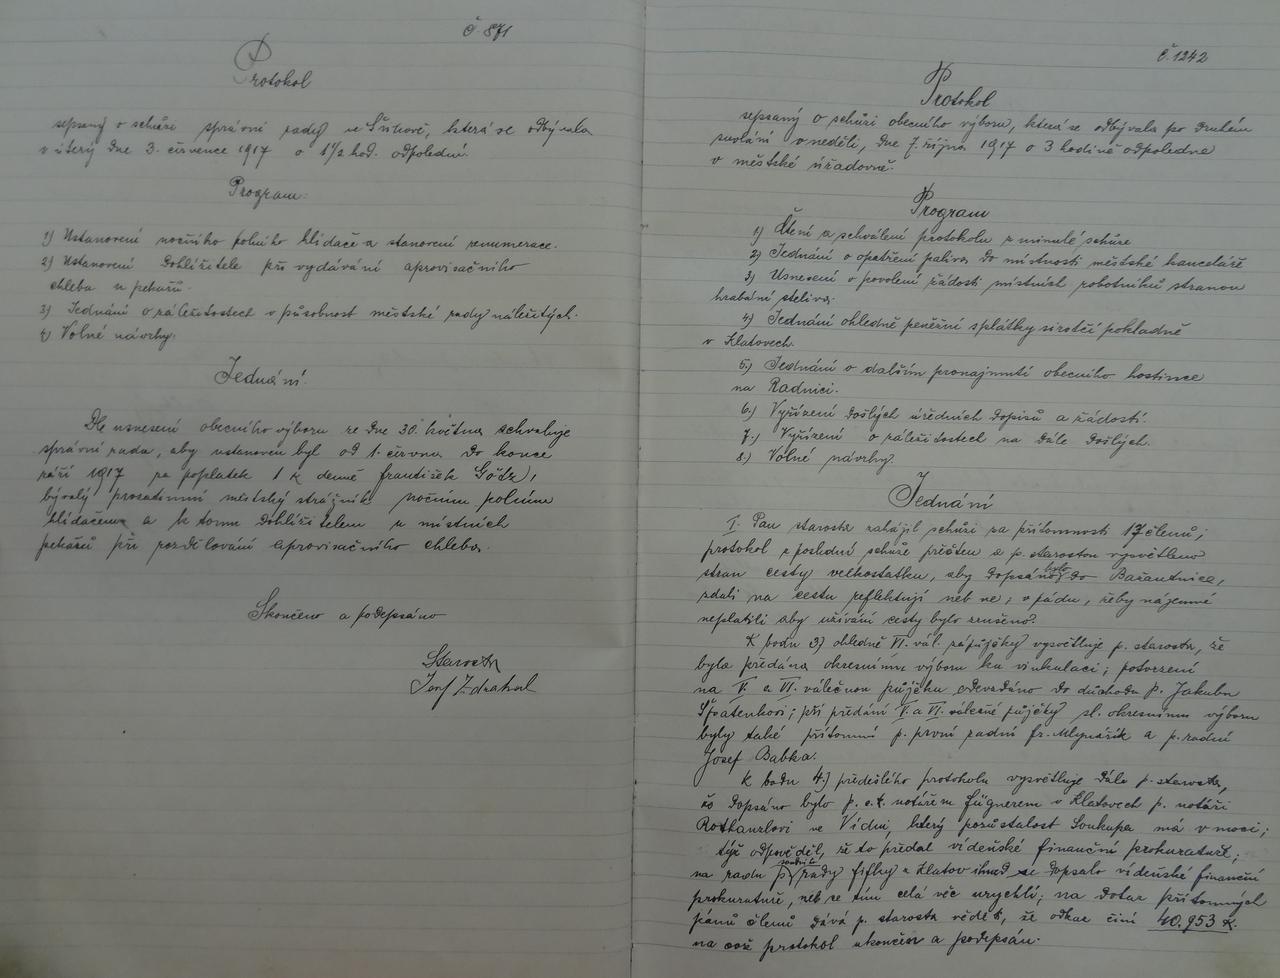 č. 871
Protokol
sepsaný o schůzi správní rady ve Švihově, která se odbývala
v úterý dne 3. července 1917 o 1 1/2 hod. odpolední.
Program:
1) Ustanovení nočního polního hlídače a stanovení renumerace.
2) Ustanovení dohlížitele při vydávání aprovisačního
chleba u pekařů.
3) Jednání o záležitostech v působnost městské rady náležitých.
4) Volné návrhy.
Jednání.
Dle usnesení obecního výboru ze dne 30. května schvaluje
správní rada, aby ustanoven byl od 1. června do konce
září 1917 za poplatek 1 K denně František Götz,
bývalý prozatimní městský strážník nočním polním
hlídačem a k tomu dohlížitelem u místních
pekařů při rozdělování aprovisačního chleba.
Skončeno a podepsáno
Starosta
Josef Zdrahal
č. 1242
Protokol
sepsaný o schůzi obecního výboru, která se odbývala po druhém
svolání v neděli, dne 7. října 1917 o 3 hodině odpoledne
v městské úřadovně.
Program
1) Čtení a schválení protokolu z minulé schůze
2) Jednání o opatření paliva do místností městské kanceláře
3) Usnesení o povolení žádosti místních robotníků stranou
hrabání steliva.
4) Jednání ohledně peněžní splátky sirotčí pokladně
v Klatovech.
5.) Jednání o dalším pronajmutí obecního hostince
na Radnici.
6.) Vyřízení došlých úředních dopisů a žádostí.
7.) Vyřízení o záležitostech na dále došlých.
8.) Volné návrhy.
Jednání
I. Pan starosta zahájil schůzi za přítomnosti 17 členů;
protokol z poslední schůze přečten a p. starostou vysvětleno
stran cesty velkostatku, aby dopsáno bylo do Bažantnice,
zdali na cestu reflektují neb ne; v pádu, žeby nájemné
neplatili aby užívání cesty bylo zrušeno.
K bodu 3) ohledně VI. vál. zápůjčky vysvětluje p. starosta, že
byla předána okresnímu výboru ku vinkulaci; potvrzení
na V. a VI. válečnou půjčku odevzdáno do důchodu p. Jakubu
Špatenkovi; při předání V. a VI. válečné půjčky sl. okresnímu výboru
byly také přítomni p. první radní Fr. Mlynařík a p. radní
Josef Babka.
K bodu 4.) předešlého protokolu vysvětluje dále p. starosta,
že dopsáno bylo p. c. k. notářem Fügnerem v Klatovech p. notáři
Rothanzlovi ve Vídni, který pozůstalost Soukupa má v moci;
týž odpověděl, že to předal vídeňské finanční prokuratuře;
na radu p. rady Fifky z Klatov ihned se dopsalo vídeňské finanční
prokuratuře, neb se tím celá věc urychlí; na dotaz přítomných
pánů členů dává p. starosta věděti, že odkaz činí 40.953 K.
na což protokol ukončen a podepsán.